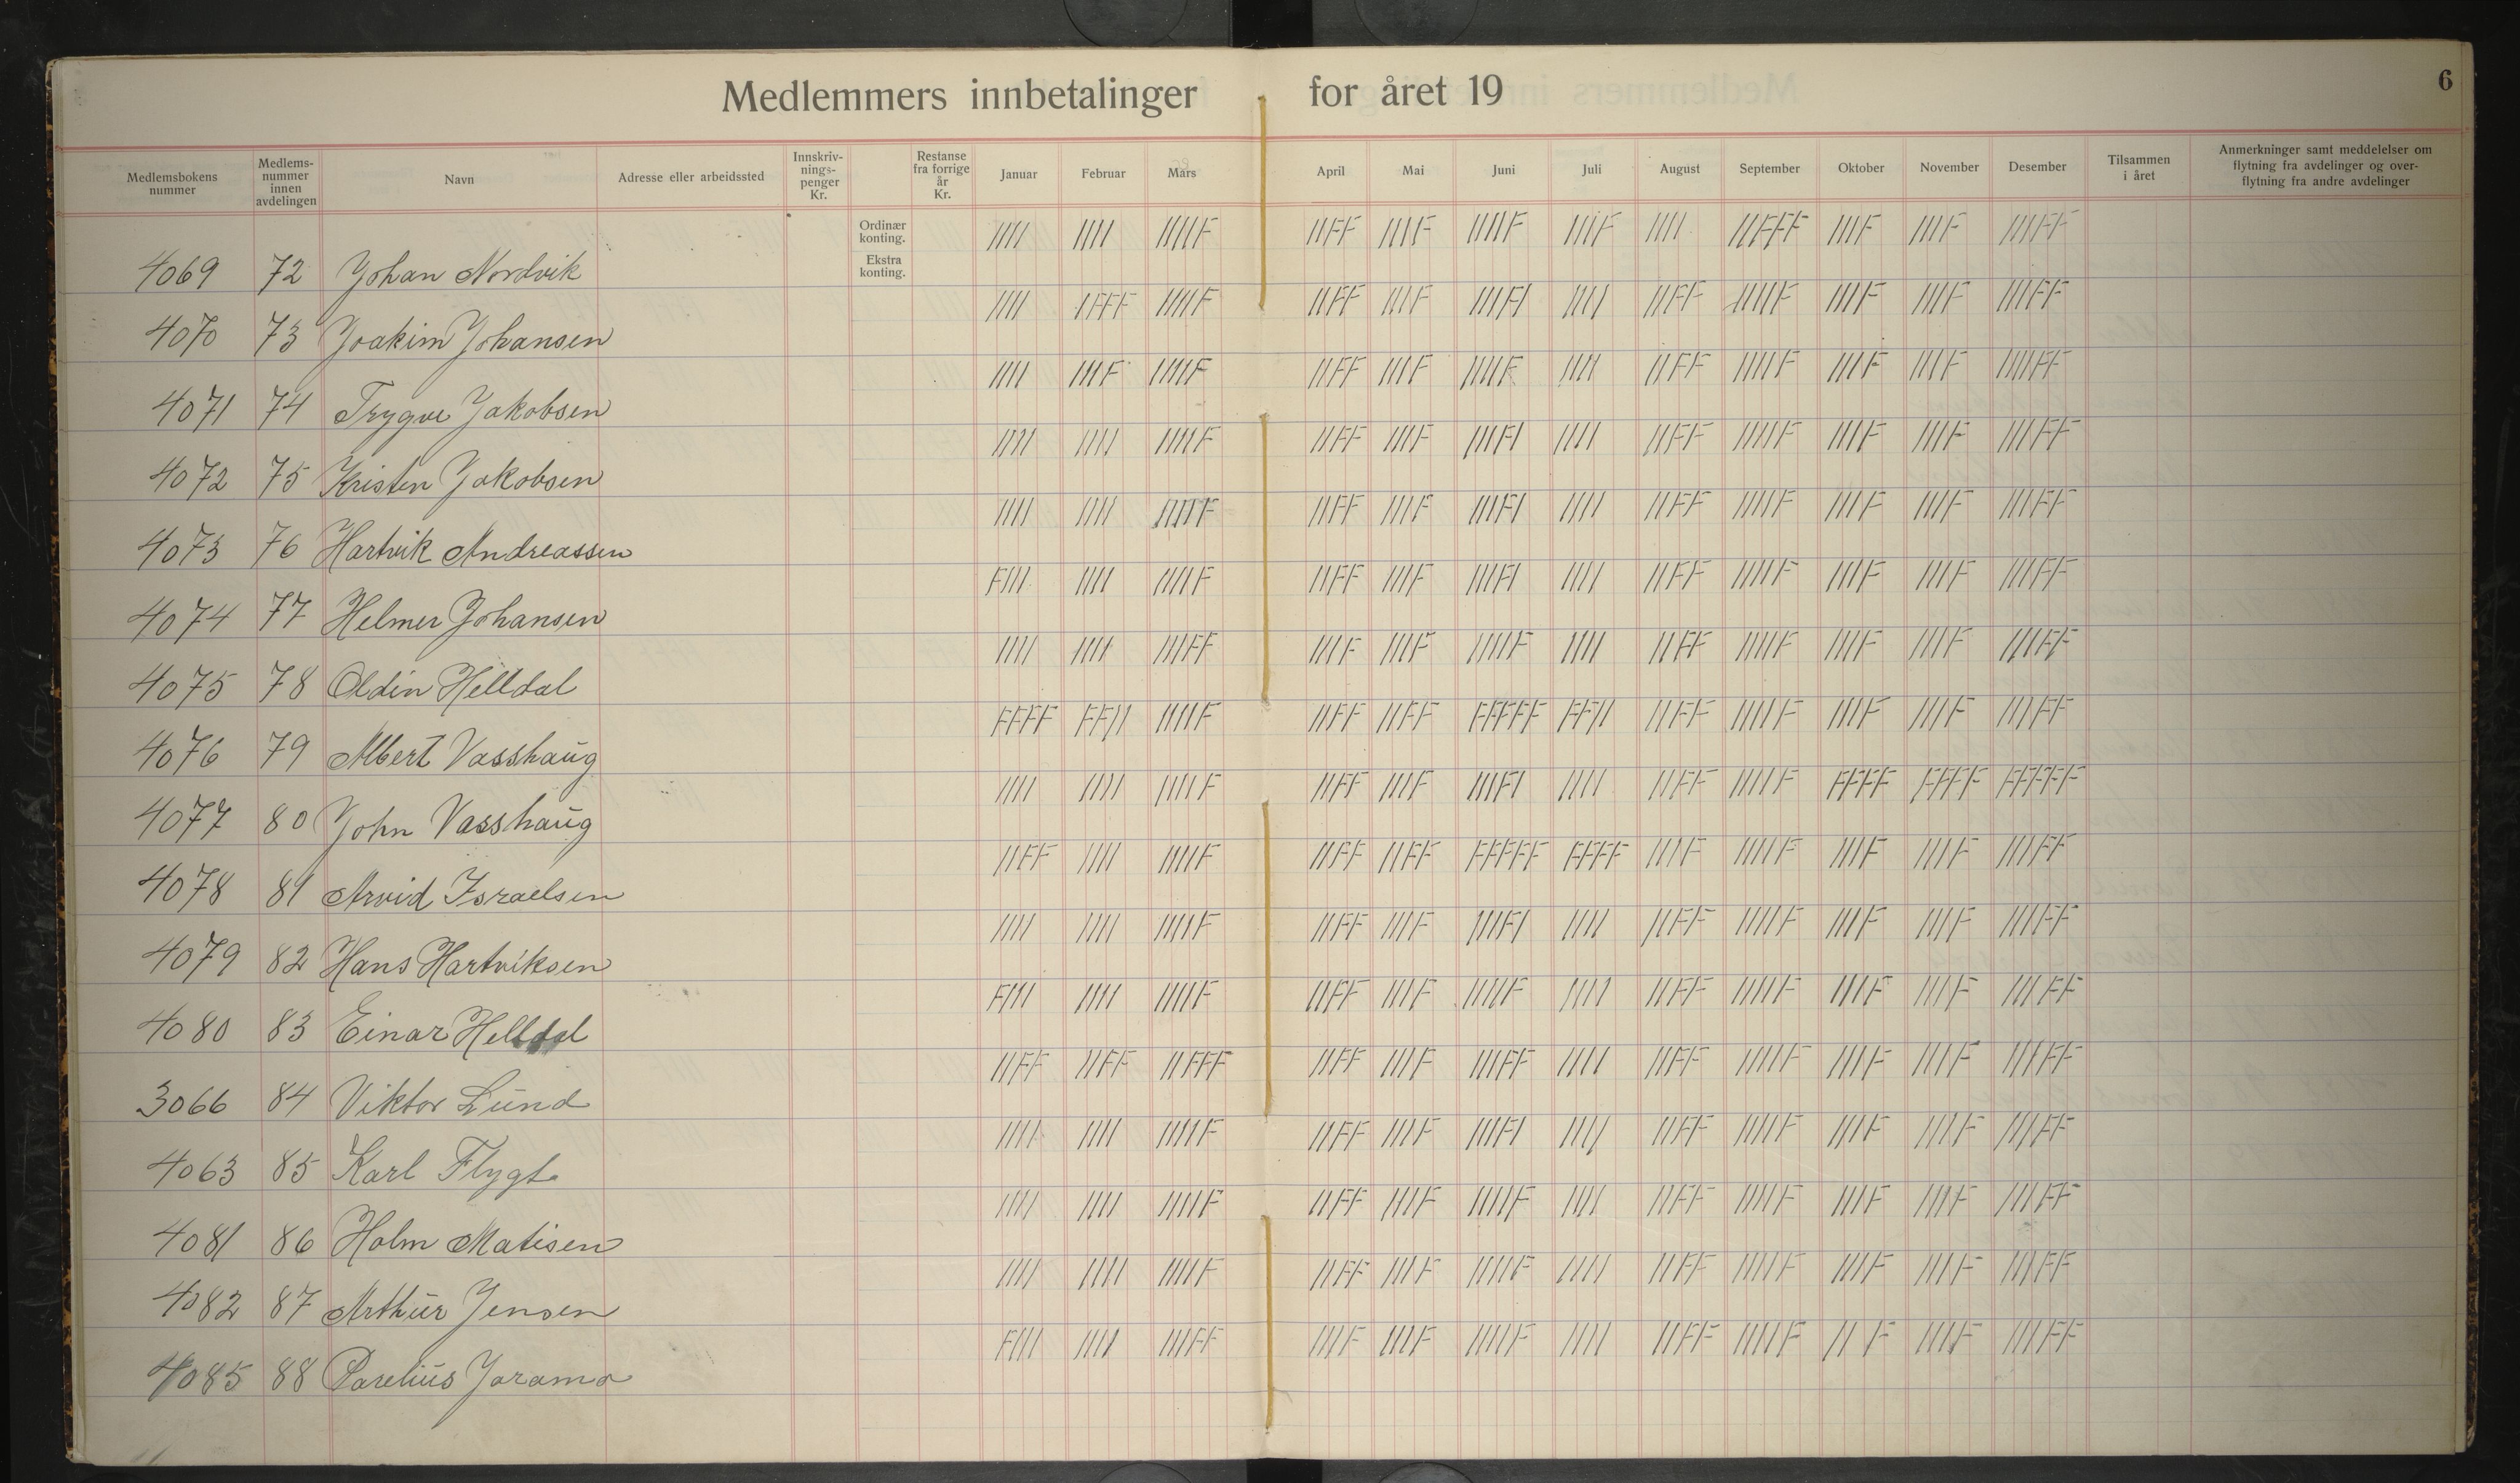 Medlemmers innbetalinger for året 19
6
Medlemsbokens nummer
Medlems-nummer innen avdelingen
Navn
Adresse eller arbeidssted
Innskriv-nings-penger Kr.
Restanse fra forrige år Kr.
Januar
Februar
Mars
April
Mai
Juni
Juli
August
September
Oktober
November
Desember
Tilsammen i året
Anmerkninger samt meddelelser om flytning fra avdelinger og over-flytning fra andre avdelinger
Ordinær konting.
IIII IIII IIIIF IIFF IIIF IIIIF IIIF IIII IIFFF IIIF IIIF IIIFF
Ekstra konting.
4069 72 Johan Nordvik
IIII IFFF IIIIF IIFF IIIF IIIFI IIII IIFF IIIIF IIIF IIIF IIIFF
4070 73 Joakim Johansen
IIII IIIF IIIIF IIFF IIIF IIIIF IIII IIFF IIIIF IIIF IIIF IIIFF
4071 74 Trygve Jakobsen
IIII IIII IIIIF IIFF IIIF IIIFI IIII IIFF IIIIF IIIF IIIF IIIFF
4072 75 Kristen Jakobsen
IIII IIII IIIIF IIFF IIIF IIIFI IIII IIFF IIIIF IIIF IIIF IIIFF
4073 76 Hartvik Andreassen
FIII IIII IIIIF IIFF IIIF IIIFI IIII IIFF IIIIF IIIF IIIF IIIFF
4074 77 Helmer Johansen
IIII IIII IIIFF IIIF IIIF IIIIF IIII IIFF IIIIF IIIF IIIF IIIFF
4075 78 Oldin Helldal
FFFF FFII IIIIF IIFF IIFF FFFFF FFII IIFF IIIIF IIIF IIIF IIIFF
4076 79 Albert Vasshaug
IIII IIII IIIIF IIFF IIIF IIIFI IIII IIFF IIIIF FFFF FFFF FFFFF
4077 80 John Vasshaug
IIFF IIII IIIIF IIFF IIFF FFFFF FFFF IIIF IIIIF IIIF IIIF IIIFF
4078 81 Arvid Israelsen
IIII IIII IIIIF IIFF IIIF IIIFI IIII IIFF IIIIF IIIF IIIF IIIFF
4079 82 Hans Hartviksen
FIII IIII IIIIF IIFF IIIF IIIIF IIII IIFF IIIIF IIIF IIIF IIIFF
4080 83 Einar Helldal
IIFF IIFF IIFFF IIFF IIIF IIIFF IIII IIFF IIIIF IIIF IIIF IIIFF
3066 84 Viktor Lund
IIII IIII IIIIF IIFF IIIF IIIFI IIII IIFF IIIIF IIIF IIIF IIIFF
4063 85 Karl Flygt
IIII IIII IIIIF IIFF IIIF IIIIF IIII IIFF IIIIF IIIF IIIF IIIFF
4081 86 Holm Matisen
IIII IIII IIIIF IIFF IIIF IIIIF IIII IIFF IIIIF IIIF IIIF IIIFF
4082 87 Arthur Jensen
FIII IIII IIIFF IIIF IIIF IIIIF IIII IIFF IIIIF II F IIIF IIIFF
4085 88 Parelius Jarama